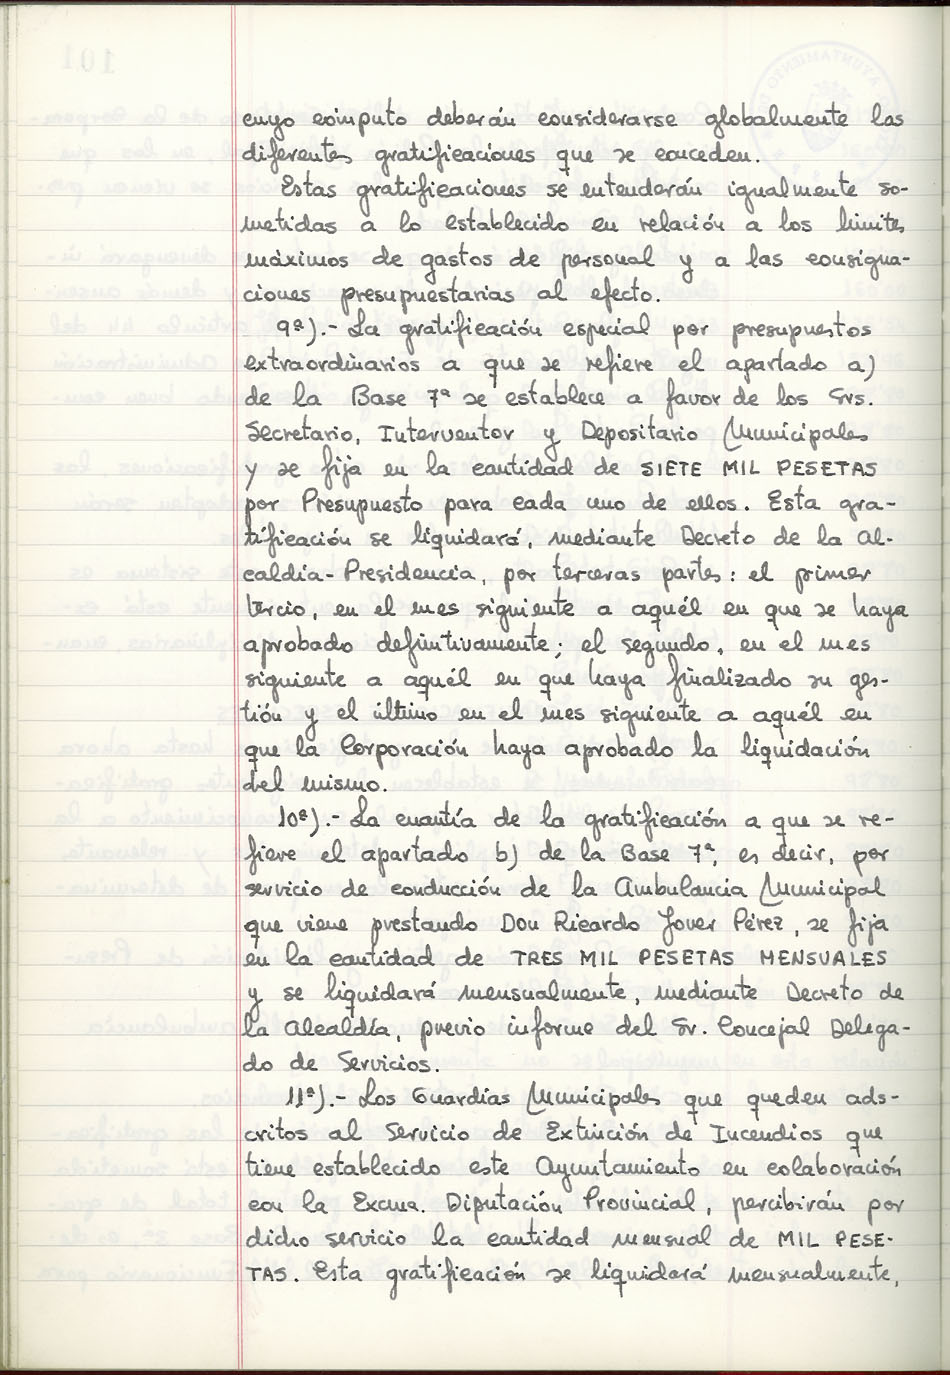 cuyo cómputo deberán considerarse globalmente las
diferentes gratificaciones que se conceden.
Estas gratificaciones se entenderán igualmente so-
metidas a lo establecido en relación a los límites
máximos de gastos de personal y a las consigna-
ciones presupuestarias al efecto.
9ª).- La gratificación especial por presupuestos
extraordinarios a que se refiere el apartado a)
de la Base 7ª se establece a favor de los Srs.
Secretario, Interventor y Depositario Municipales
y se fija en la cantidad de SIETE MIL PESETAS
por Presupuesto para cada uno de ellos. Esta gra-
tificación se liquidará, mediante Decreto de la Al-
caldía-Presidencia, por terceras partes: el primer
tercio, en el mes siguiente a aquél en que se haya
aprobado definitivamente; el segundo, en el mes
siguiente a aquél en que haya finalizado su ges-
tión y el último en el mes siguiente a aquél en
que la Corporación haya aprobado la liquidación
del mismo.
10ª).- La cuantía de la gratificación a que se re-
fiere el apartado b) de la Base 7ª, es decir, por
servicio de conducción de la Ambulancia Municipal
que viene prestando Don Ricardo Jover Pérez, se fija
en la cantidad de TRES MIL PESETAS MENSUALES
y se liquidará mensualmente, mediante Decreto de
la Alcaldía, previo informe del Sr. Concejal Delega-
do de Servicios.
11ª).- Los Guardias Municipales que queden ads-
critos al Servicio de Extinción de Incendios que
tiene establecido este Ayuntamiento en colaboración
con la Excma. Diputación Provincial, percibirán por
dicho servicio la cantidad mensual de MIL PESE-
TAS. Esta gratificación se liquidará mensualmente,